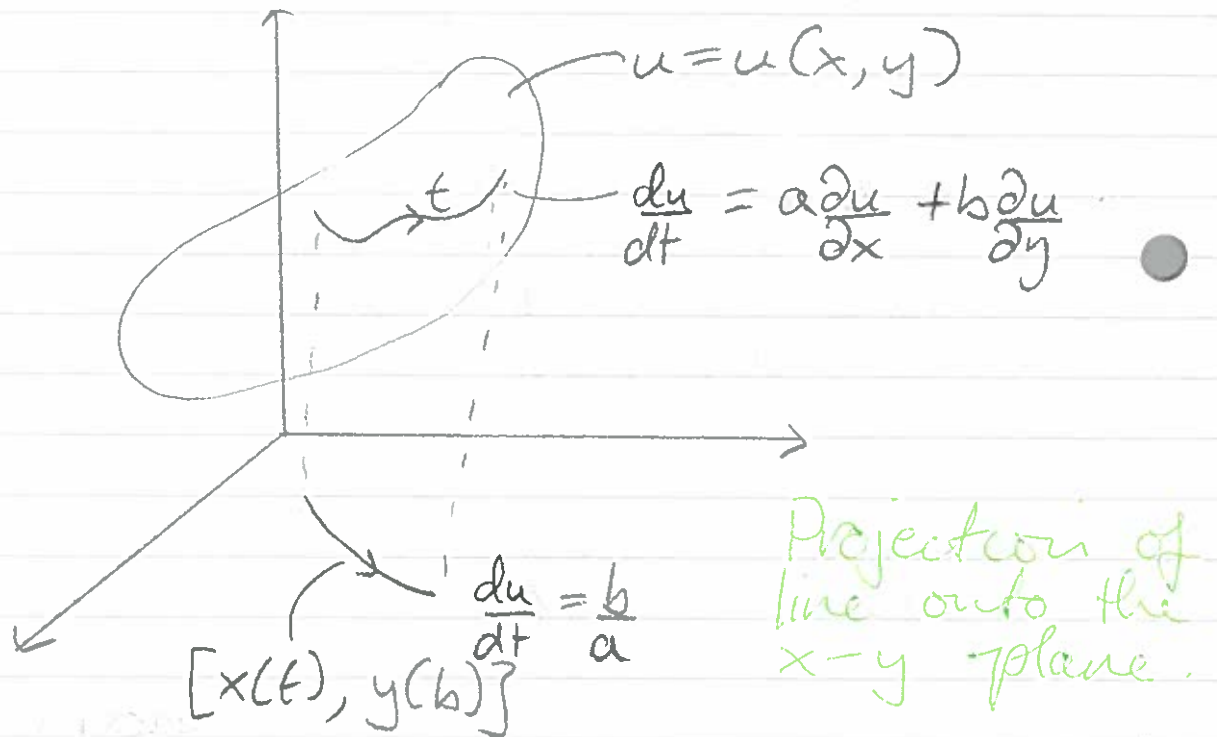 u = u(x, y)
t
du/dt = a ∂u/∂x + b ∂u/∂y
du/dt = b/a
[x(t), y(b)}
Projection of
line onto the
x-y plane.